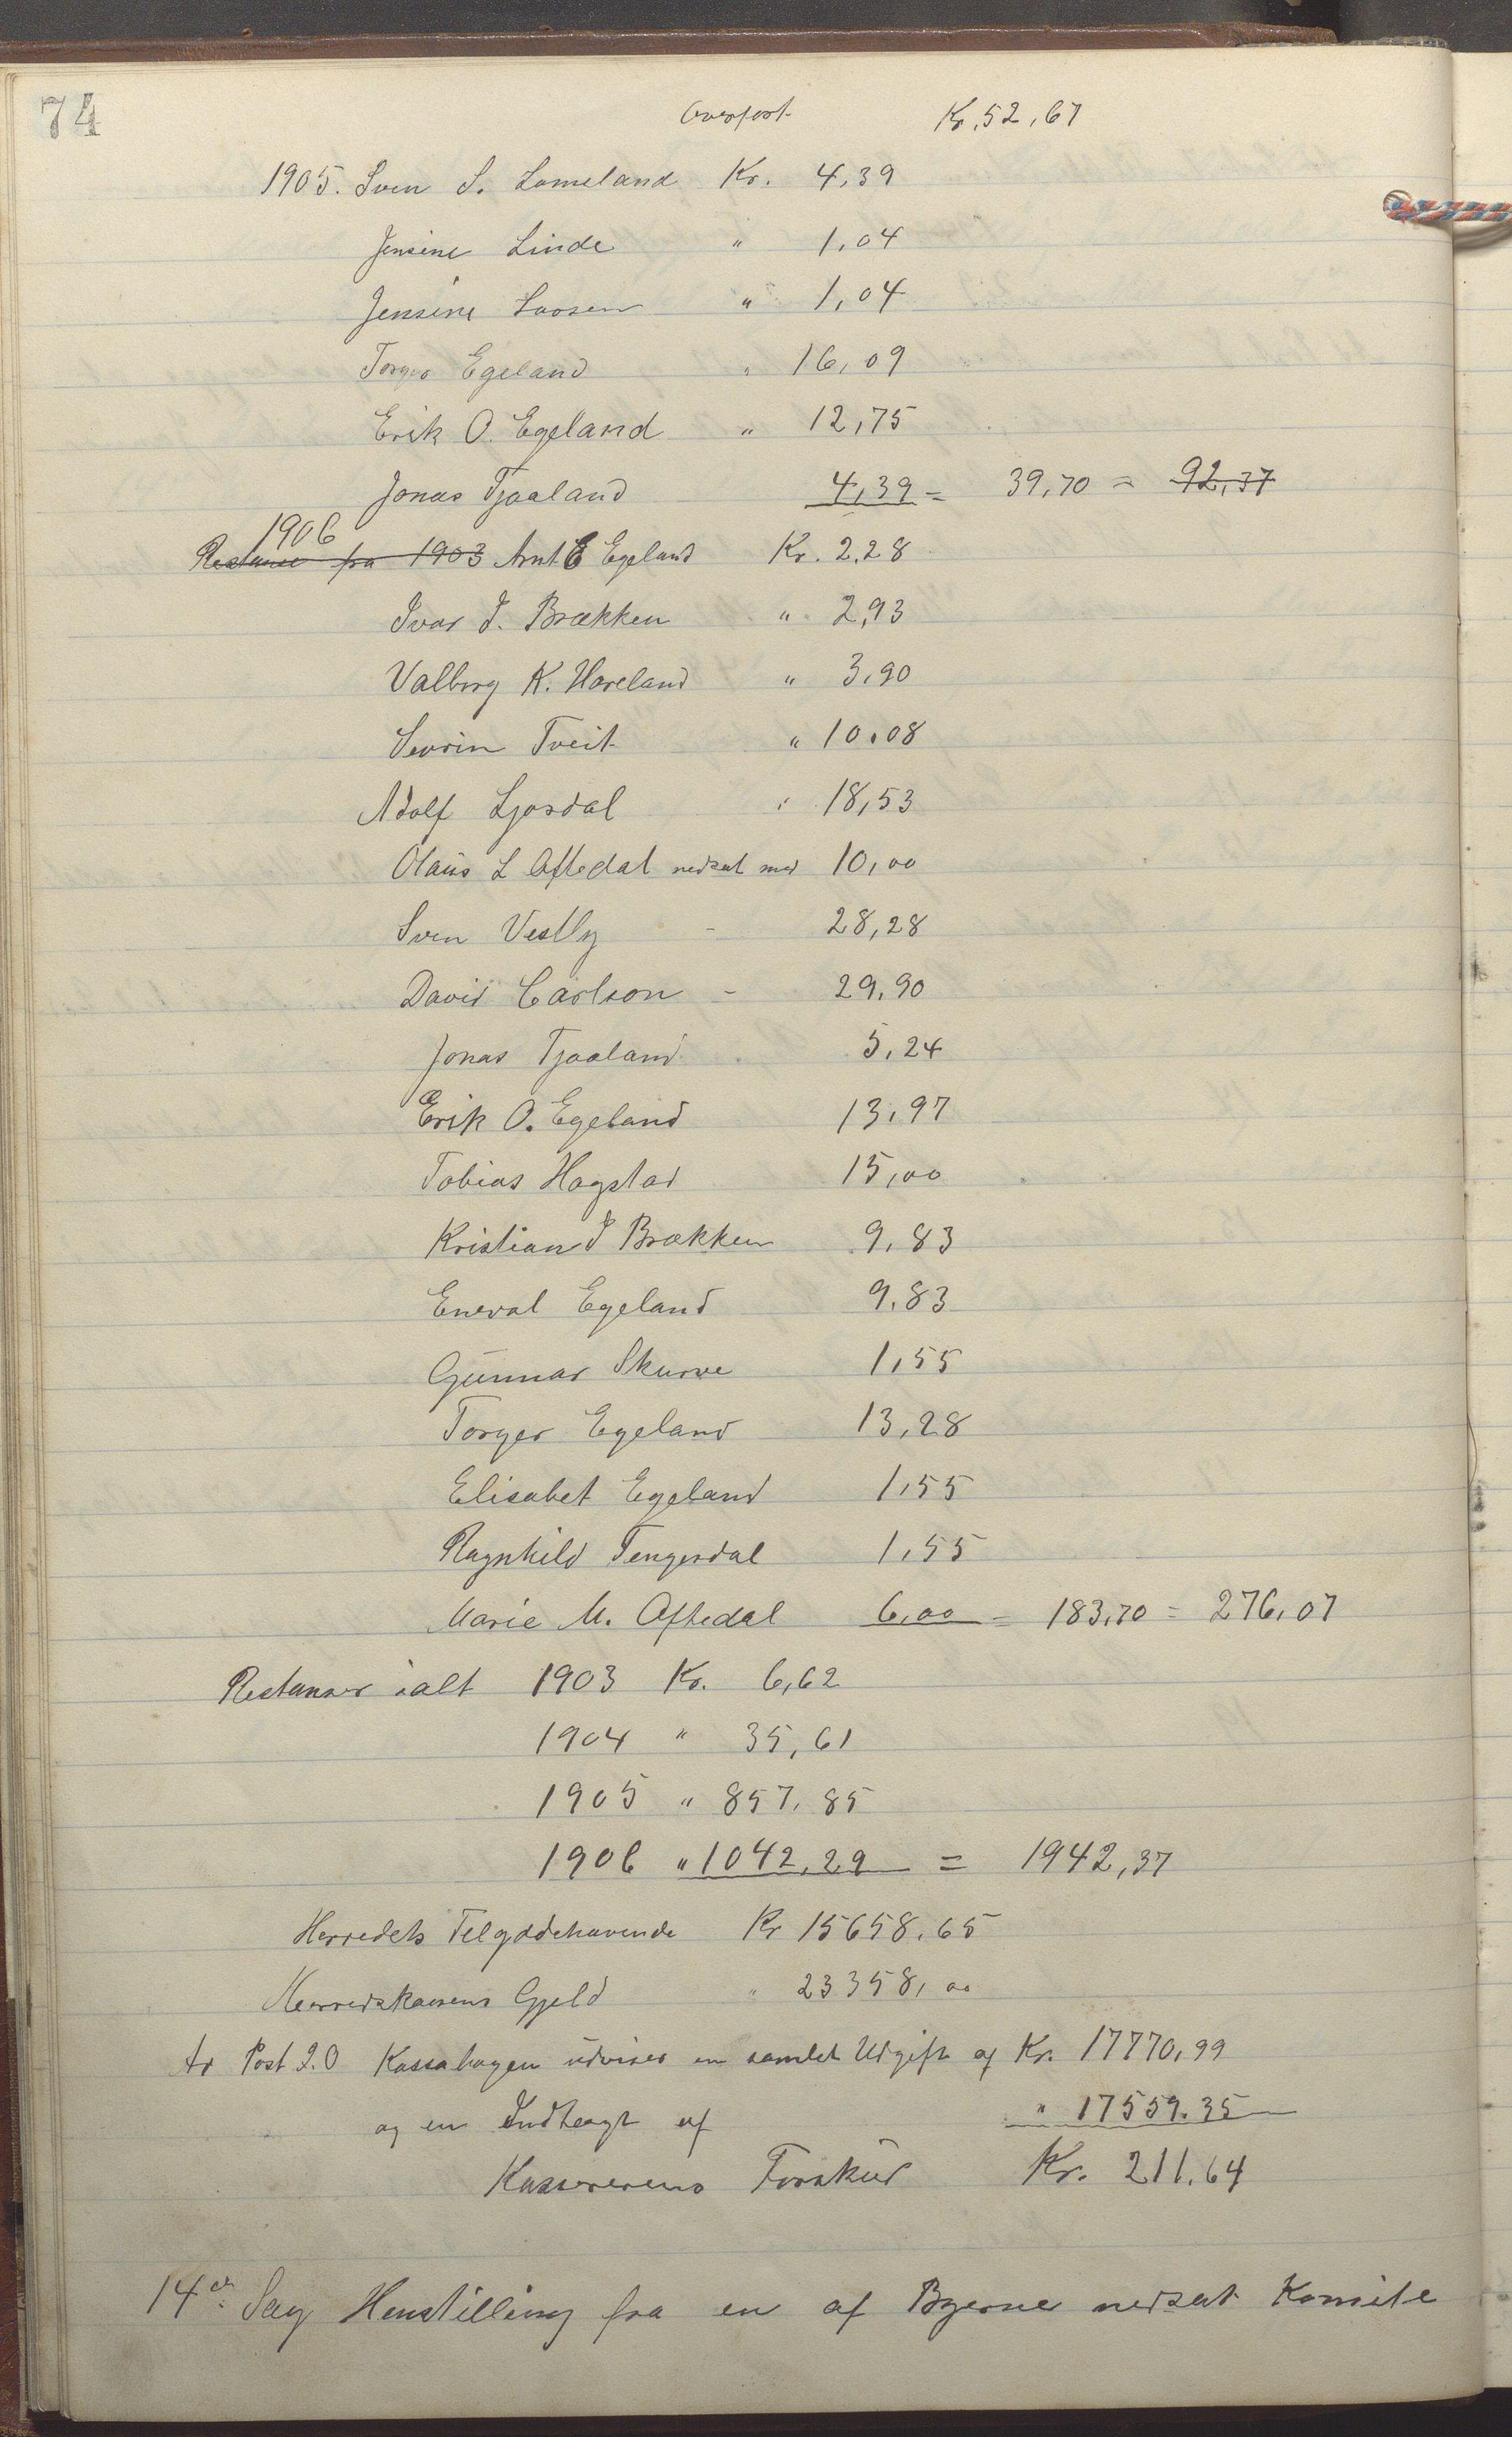 74
Overført Kr. 52,67
1905. Sven S. Lomeland Kr. 4,39
Jensine Linde " 1,04
Jensine Larsen " 1,04
Torger Egeland " 16,09
Erik O. Egeland " 12,75
Jonas Tjaaland 4,39 = 39,70 = 92,37
1906
Restanse fra 1903 Arnt E Egeland Kr. 2.28
Ivar I. Brækken " 2,93
Valborg K. Haveland " 3,90
Sevrin Tveit " 10.08
Adolf Ljosdal " 18,53
Olaus L Aftedal nedsat med 10,00
Sven Vestly - 28,28
David Carlson - 29,90
Jonas Tjaaland 5,24
Erik O. Egeland 13,97
Tobias Hogstad 15,00
Kristian I Brækken 9,83
Eneval Egeland 9,83
Gunnar Skurve 1,55
Torger Egeland 13,28
Elisabet Egeland 1,55
Ragnhild Tengesdal 1,55
Marie M. Aftedal 6,00 = 183,70 = 276,07
Restanser ialt 1903 Kr. 6,62
1904 " 35,61
1905 " 857,85
1906 " 1042,29 = 1942,37
Herredets Tilgodehavende Kr 15658,65
Herredskassens Gjeld " 23358,00
Ar Post 2.0 Kassabogen udviser en samlet Udgift af Kr. 17770,99
og en Indtægt af " 17559.35
Kassererens Forskud Kr. 211.64
14de Sag Henstilling fra en af Byerne nedsat Komite